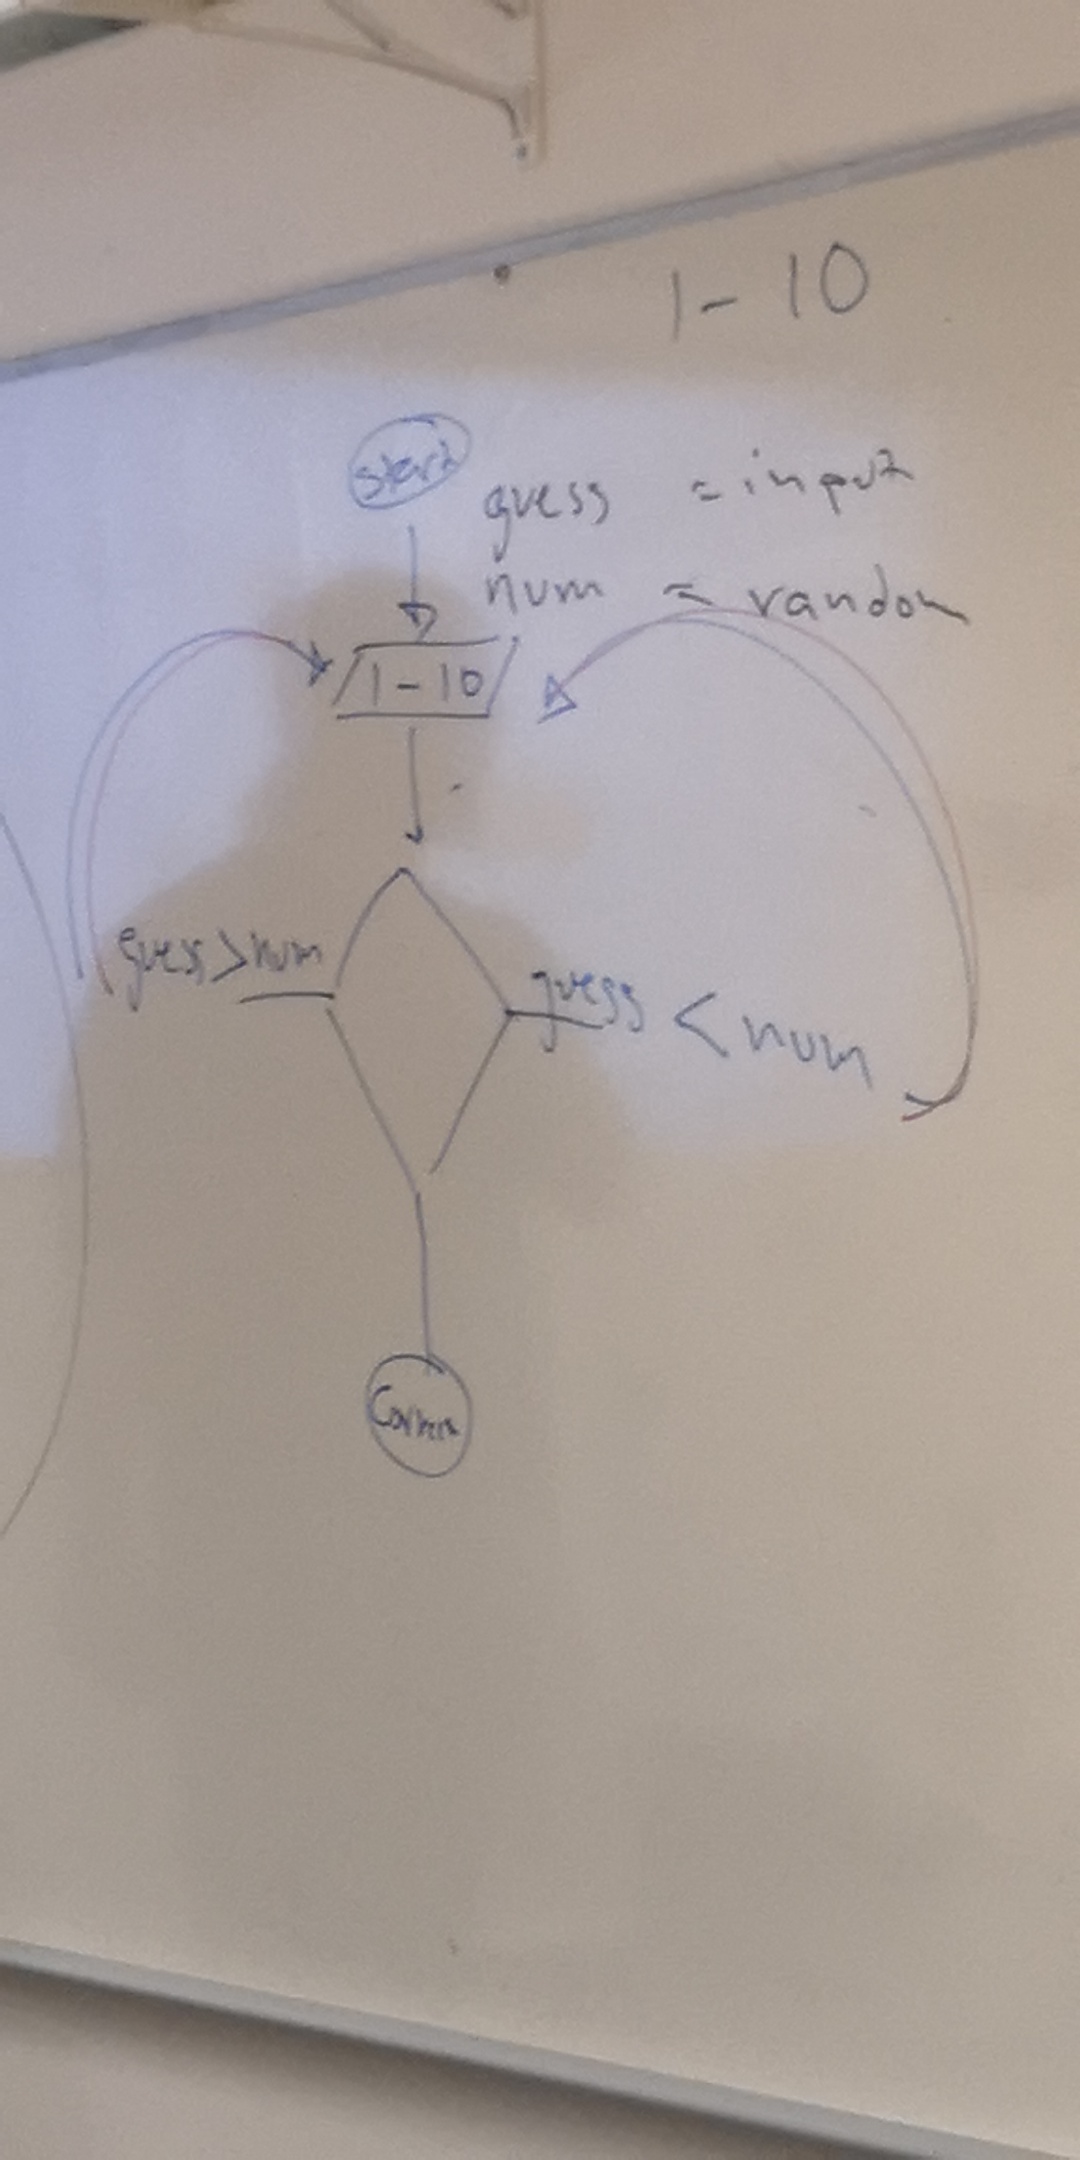 1 - 10
start
guess = input
num = random
1 - 10
guess > num
guess < num